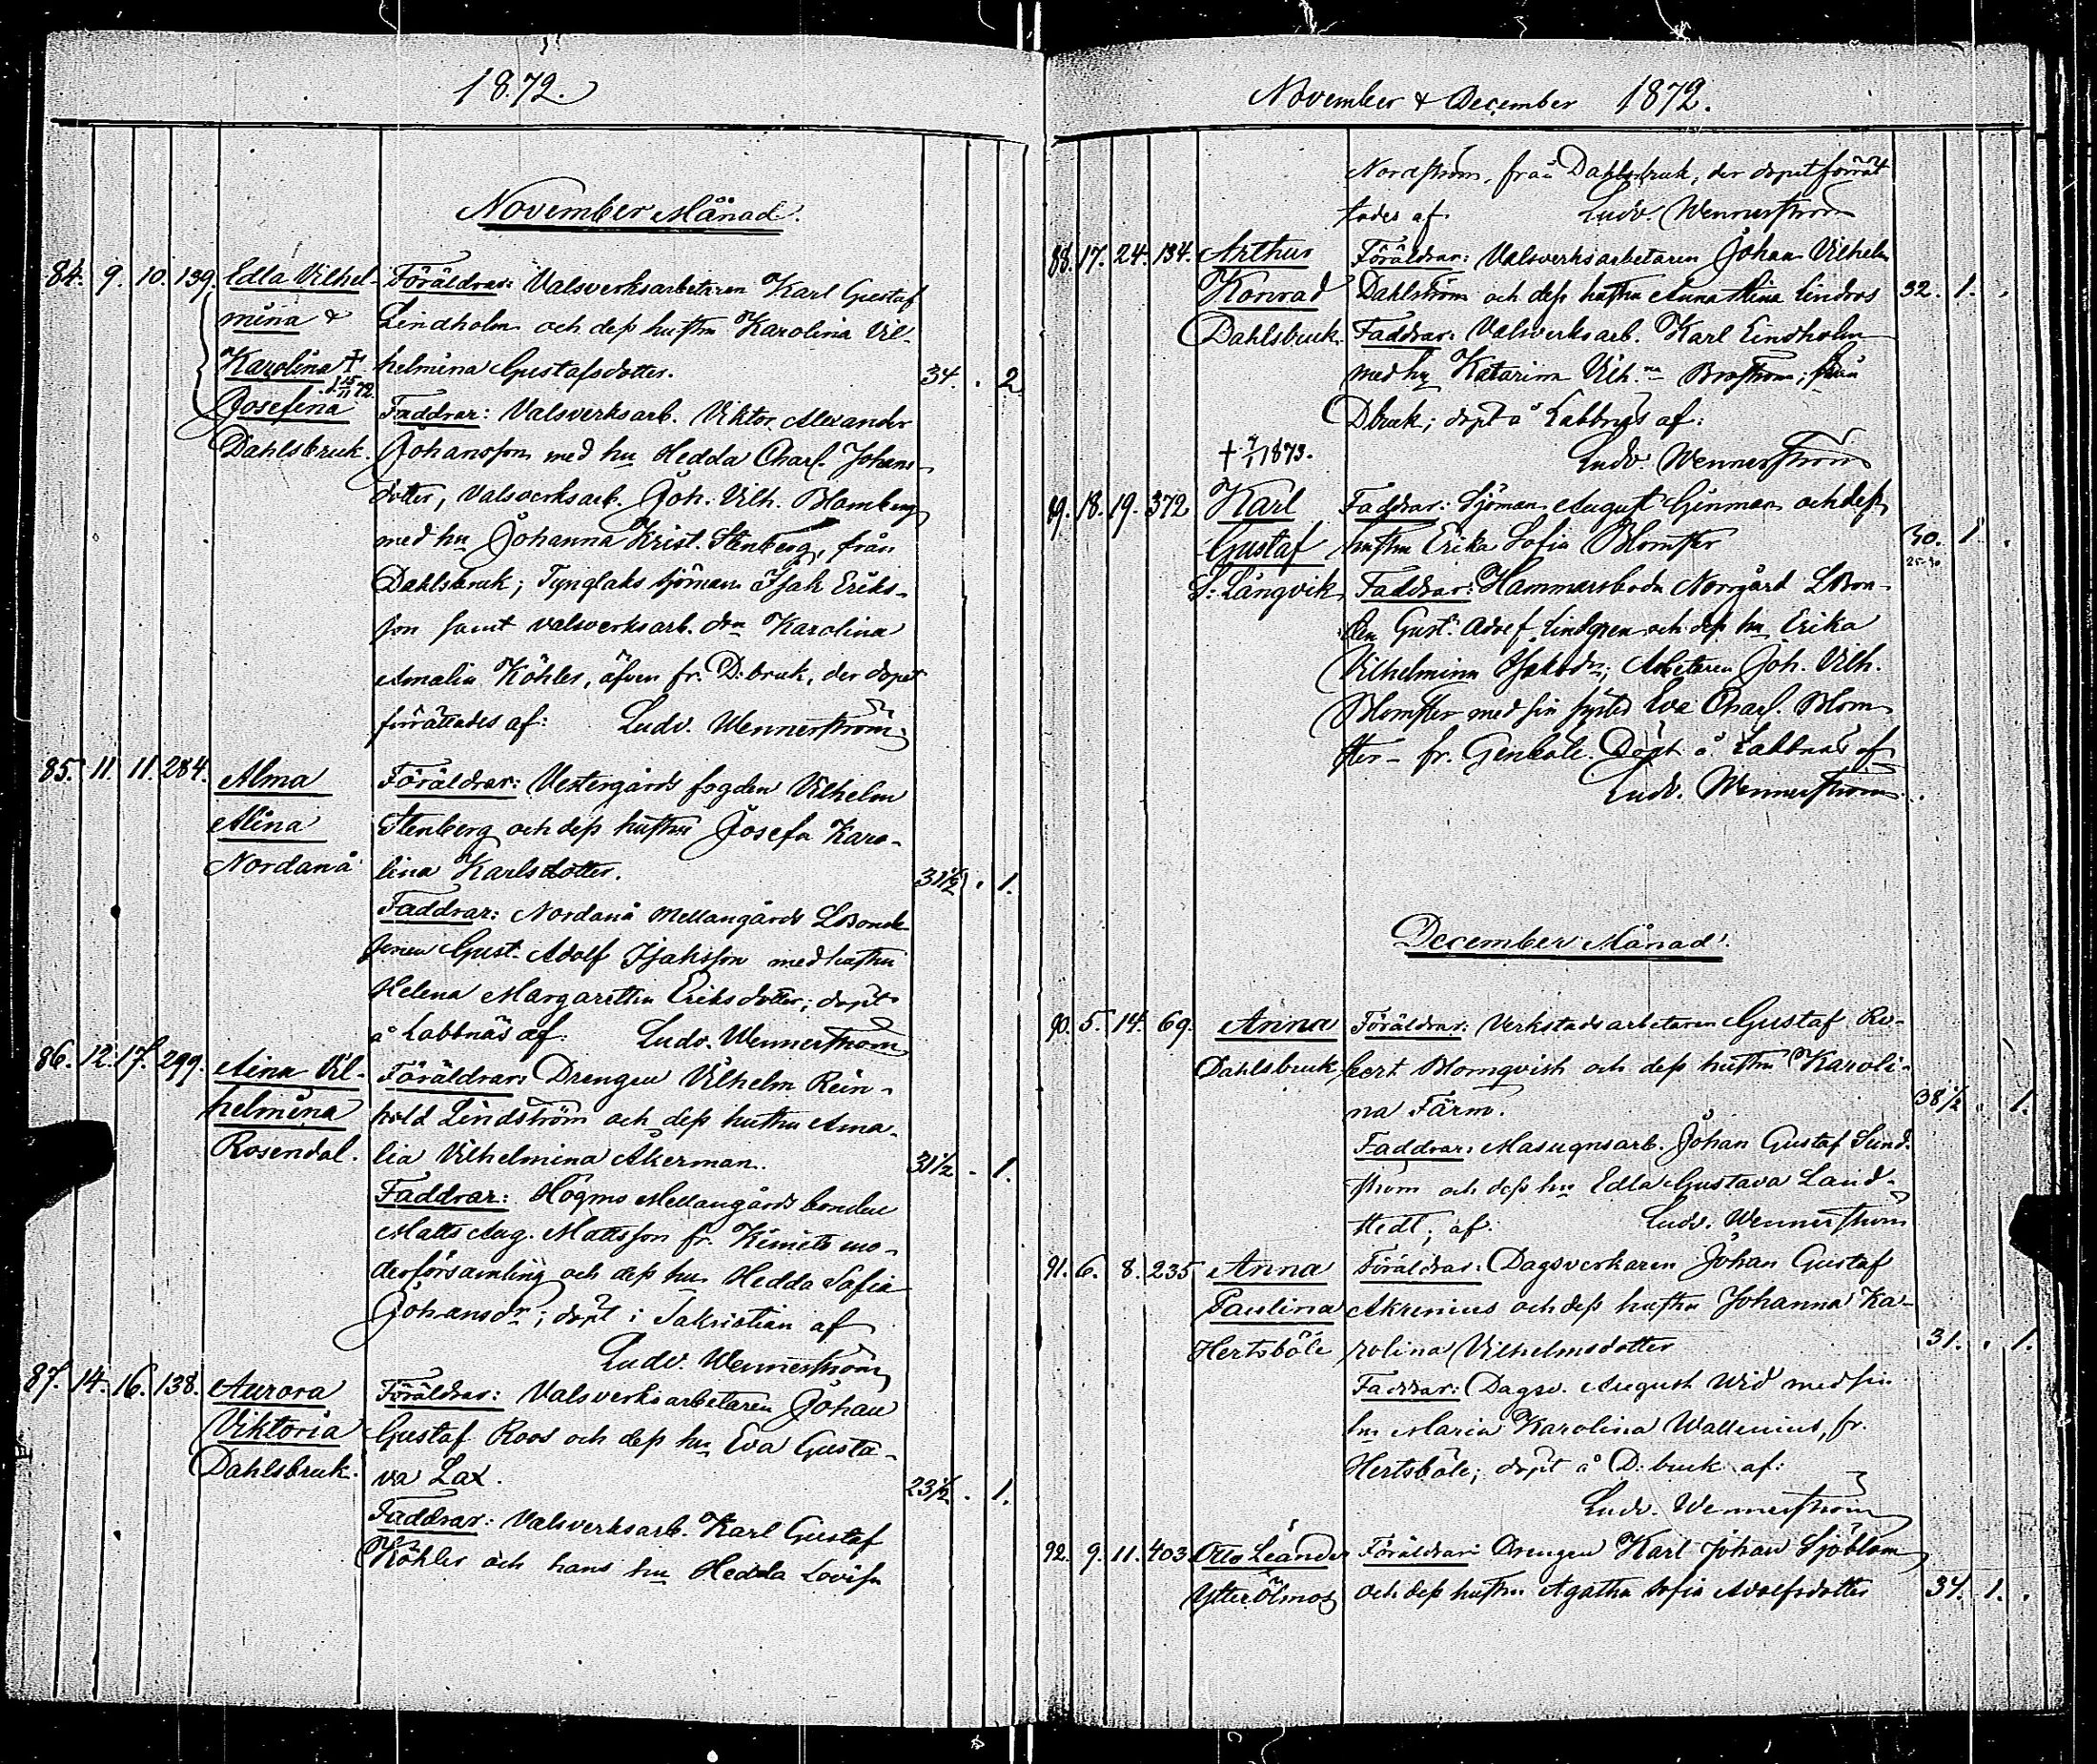 1872.
November Månad.
84. 9. 10. 139. Edla Vilhel- Föräldrar: Valsverksarbetaren Karl Gustaf
mina & Lindholm och dess hustru Karolina Vil-
Karolina † helmina Gustafsdotter. 34. . 2
d. 15/11 72.
Josefina Faddrar: Valsverksarb. Viktor Alexander
Dahlsbruk. Johansson med hu Hedda Charl. Johans-
dotter, Valsverksarb. Joh. Vilh. Blomberg
med hu Johanna Krist. Stenberg, från
Dahlsbruk; Tynglaks sjöman Isak Eriks-
son samt valsverksarb. drn Karolina
Amalia Köhler, äfven fr. D:bruk, der dopet
förrättades af: Ludv. Wennerström.
85. 11. 11. 284. Alma Föräldrar: Vestergårds fogden Vilhelm
Alina Stenberg och dess hustru Josefa Karo-
Nordanå lina Karlsdotter. 31½ . 1.
Faddrar: Nordanå Mellangårds LBonde
sonen Gust. Adolf Isaksson med hustru
Helena Margaretha Eriksdotter; döpt
å Labbnäs af: Ludv. Wennerström
86. 12. 17. 299. Aina Vil- Föräldrar: Drengen Vilhelm Rein-
helmina hold Lindström och dess hustru Ama-
Rosendal. lia Vilhelmina Åkerman. 31½ - 1.
Faddrar: Högmo Mellangårds bonden
Matts Aug. Mattsson fr. Kimito mo-
derförsamling och dess hu Hedda Sofia
Johansdr; döpt i Sakristian af
Ludv. Wennerström
87. 14. 16. 138. Aurora Föräldrar: Valsverksarbetaren Johan
Viktoria Gustaf Roos och dess hu Eva Gusta-
Dahlsbruk. va Lax. 23½ . 1.
Faddrar: Valsverksarb. Karl Gustaf
Köhler och hans hu Hedda Lovisa
November & December 1872.
Nordström, från Dahlsbruk, der dopet förrät
tades af Ludv. Wennerström
88. 17. 24. 134. Arthur Föräldrar: Valsverksarbetaren Johan Vilhelm
Konrad Dahlström och dess hustru Anna Alina Lindros 32. 1. .
Dahlsbruk. Faddrar: Valsverksarb. Karl Lindholm
med hu Katarina Vilh.na Broström; från
Dbruk; döpt å Labbnäs af:
† 1873. Ludv. Wennerström
89. 18. 19. 372 Karl Faddrar: Sjöman August Ginman och dess
Gustaf hustru Erika Sofia Blomster 30. 1 .
25-30
S: Långvik Faddrar: Hammarsboda Norrgård LBon-
den Gust. Adolf Lindgren och dess hu Erika
Vilhelmina Isaksdr; Arbetaren Joh. Vilh.
Blomster med sin syster Eva Charl. Blom
ster - fr. Genböle. Döpt å Labbnäs af
Ludv. Wennerström.
December Månad.
90. 5. 14. 69. Anna Föräldrar: Verkstadsarbetaren Gustaf Ro-
Dahlsbruk bert Blomqvist och dess hustru Karoli-
na Färm. 38½ . 1.
Faddrar: Masugnsarb. Johan Gustaf Sund-
ström och dess hu Edla Gustava Land-
stedt; af: Ludv. Wennerström
91. 6. 8. 235 Anna Föräldrar: Dagsverkaren Johan Gustaf
Paulina Akrenius och dess hustru Johanna Ka-
Hertsböle rolina Vilhelmsdotter 31. . 1.
Faddrar: Dagsv. August Wid med sin
hu Maria Karolina Wallenius, fr.
Hertsböle; döpt å D:bruk af:
Ludv. Wennerström
92. 9. 11. 403 Otto Leander Föräldrar: Drengen Karl Johan Sjöblom
Ytterölmos och dess hustru Agatha Sofia Adolfsdotter 34. 1. .